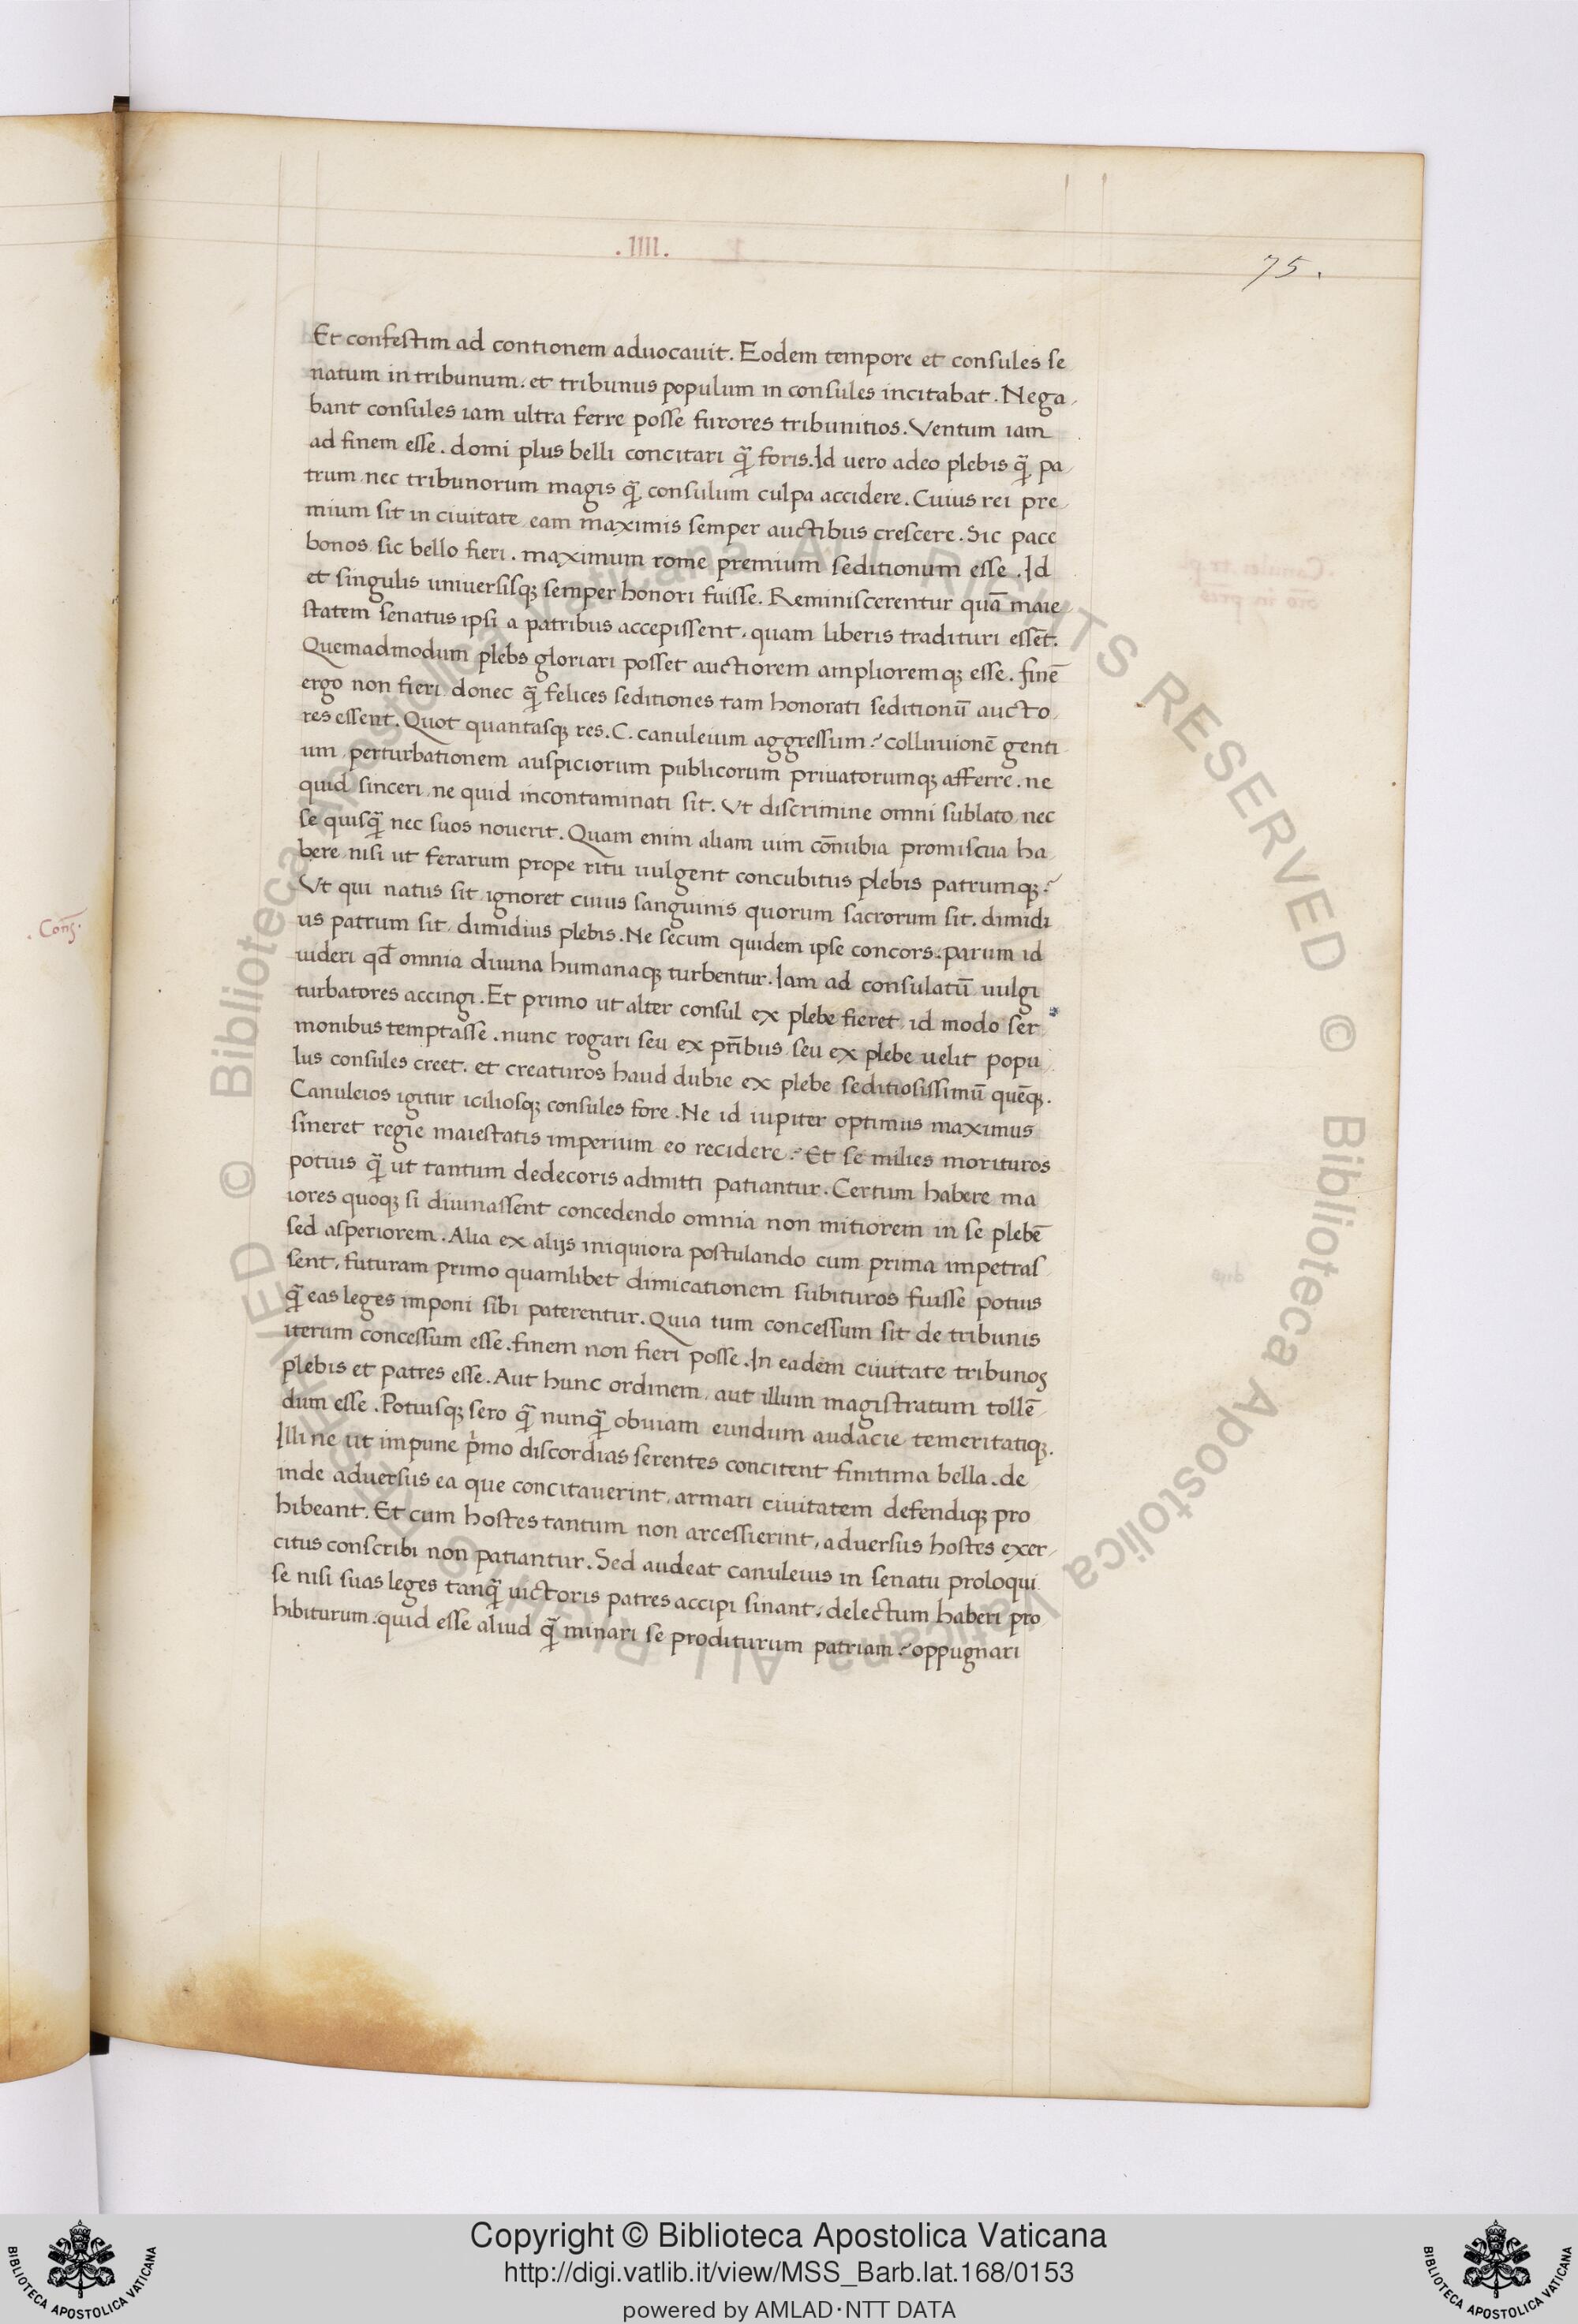 .IIII.
75.
Et confestim ad contionem aduocauit. Eodem tempore et consules se
natum in tribunum. et tribunus populum in consules incitabat. Nega
bant consules iam ultra ferre posse furores tribunitios. Ventum iam
ad finem esse. domi plus belli concitari q̃ foris. Id uero adeo plebis q̃ pa
trum nec tribunorum magis q̃ consulum culpa accidere. Cuius rei pre
mium sit in ciuitate eam maximis semper auctibus crescere. Sic pace
bonos sic bello fieri. maximum rome premium seditionum esse. Id
et singulis uniuersisq; semper honori fuisse. Reminiscerentur quā maie
statem senatus ipsi a patribus accepissent. quam liberis tradituri essēt.
Quemadmodum plebs gloriari posset auctiorem amplioremq; esse. finē
ergo non fieri donec q̃ felices seditiones tam honorati seditionū aucto
res essent. Quot quantasq; res. C. canuleium aggressum? colluuionē genti
um perturbationem auspiciorum publicorum priuatorumq; afferre. ne
quid sinceri ne quid incontaminati sit. Vt discrimine omni sublato nec
se quisq̃ nec suos nouerit. Quam enim aliam uim cōnubia promiscua ha
bere nisi ut ferarum prope ritu uulgent concubitus plebis patrumq;?
Vt qui natus sit ignoret cuius sanguinis quorum sacrorum sit. dimidi
us patrum sit dimidius plebis. Ne secum quidem ipse concors. parum id
uideri qd̄ omnia diuina humanaq; turbentur. Iam ad consulatū uulgi
turbatores accingi. Et primo ut alter consul ex plebe fieret id modo ser
monibus temptasse. nunc rogari seu ex pr̄ibus seu ex plebe uelit popu
lus consules creet. et creaturos haud dubie ex plebe seditiosissimū quēq;.
Canuleios igitur iciliosq; consules fore. Ne id iupiter optimus maximus
sineret regie maiestatis imperium eo recidere? Et se milies morituros
potius q̃ ut tantum dedecoris admitti patiantur. Certum habere ma
iores quoq; si diuinassent concedendo omnia non mitiorem in se plebē
sed asperiorem. Alia ex alijs iniquiora postulando cum prima impetras
sent. futuram primo quamlibet dimicationem subituros fuisse potius
q̃ eas leges imponi sibi paterentur. Quia tum concessum sit de tribunis
iterum concessum esse. finem non fieri posse. In eadem ciuitate tribunos
plebis et patres esse. Aut hunc ordinem aut illum magistratum tollē
dum esse. Potiusq; sero q̃ nunq̃ obuiam eundum audacie temeritatiq;.
Illi ne ut impune p̍mo discordias serentes concitent finitima bella. de
inde aduersus ea que concitauerint armari ciuitatem defendiq; pro
hibeant. Et cum hostes tantum non arcessierint, aduersus hostes exer
citus conscribi non patiantur. Sed audeat canuleius in senatu proloqui
se nisi suas leges tanq̃ uictoris patres accipi sinant, delectum haberi pro
hibiturum. quid esse aliud q̃ minari se proditurum patriam? oppugnari
. Conſ.
© Biblioteca Apostolica Vaticana ALL RIGHTS RESERVED © Biblioteca Apostolica Vaticana ALL RIGHTS RESERVED
Copyright © Biblioteca Apostolica Vaticana
http://digi.vatlib.it/view/MSS_Barb.lat.168/0153
powered by AMLAD·NTT DATA
BIBLIOTECA APOSTOLICA VATICANA
BIBLIOTECA APOSTOLICA VATICANA